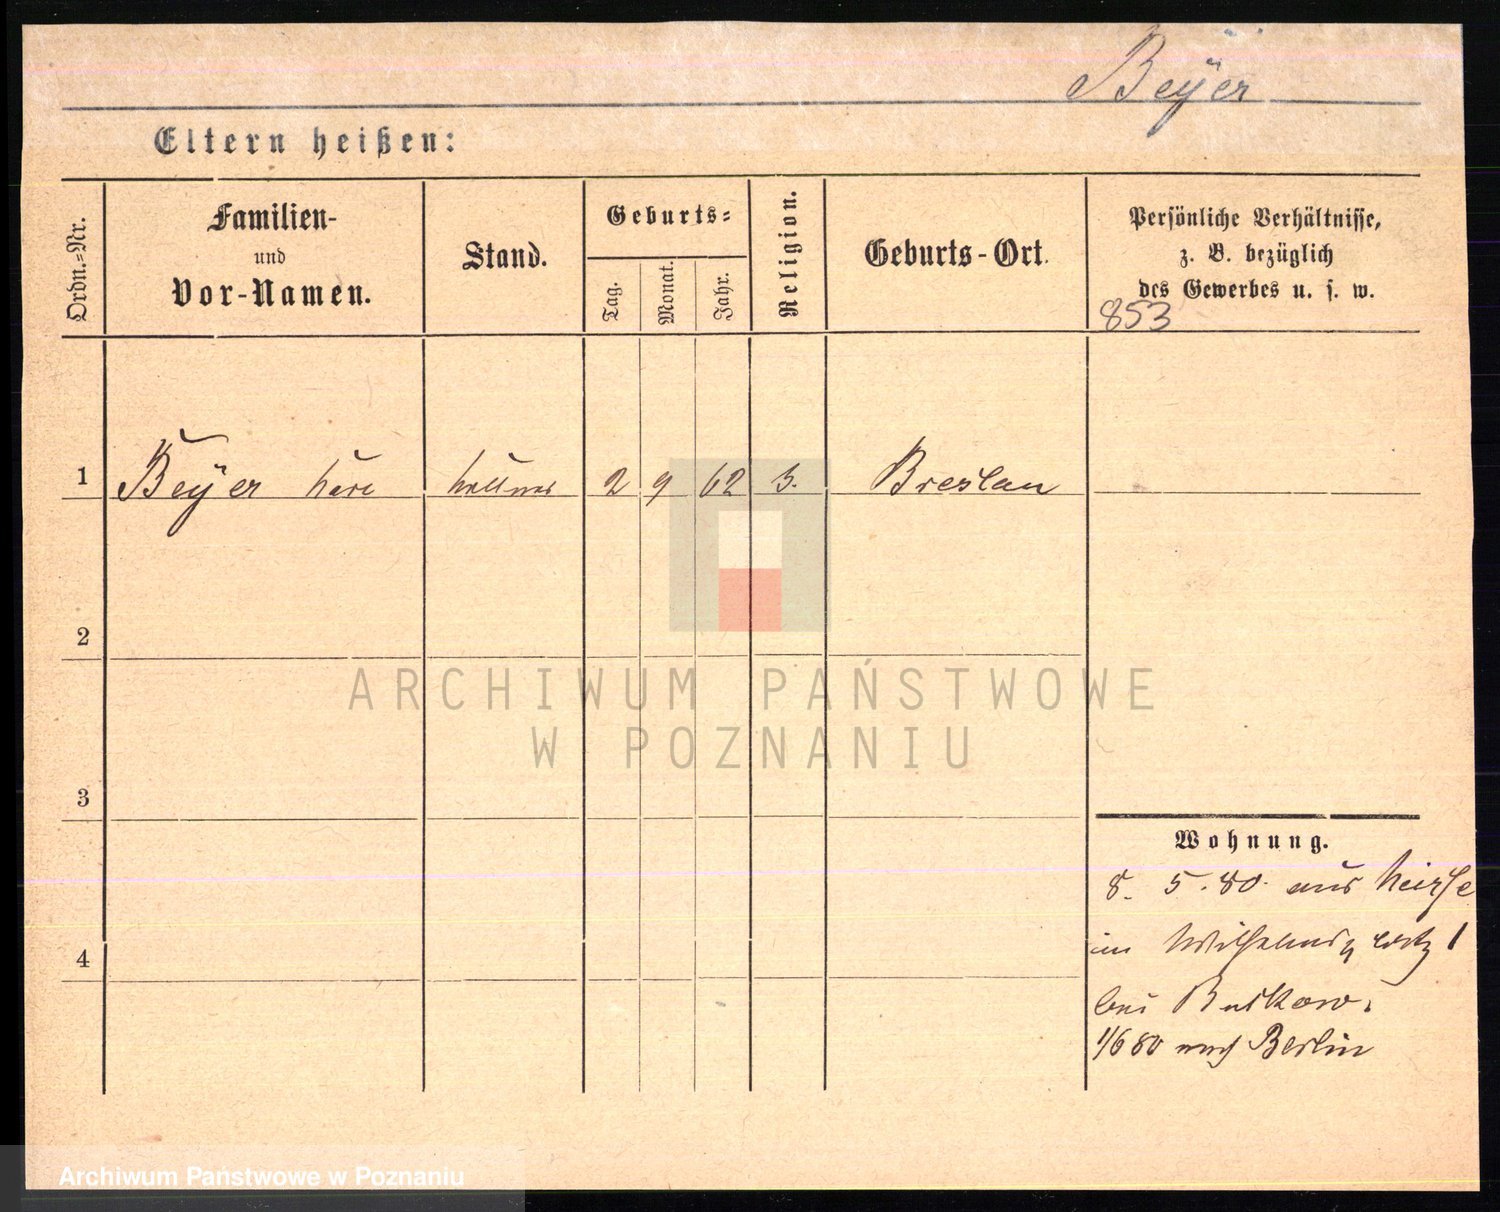 Beyer
Eltern heißen:
Ordn.=Nr.
Familien-
und
Vor-Namen.
Stand.
Geburts=
Tag.
Monat.
Jahr.
Religion.
Geburts-Ort.
Persönliche Verhältnisse,
z. B. bezüglich
des Gewerbes u. s. w.
853
1 Beyer Karl Kellner 2 9 62 Breslau
2
3
4
Wohnung.
8. 5. 80. aus Neisse
im Wilhelmsplatz 1
bei Buckow.
1/6 80 nach Berlin
ARCHIWUM PAŃSTWOWE
W POZNANIU
Archiwum Państwowe w Poznaniu